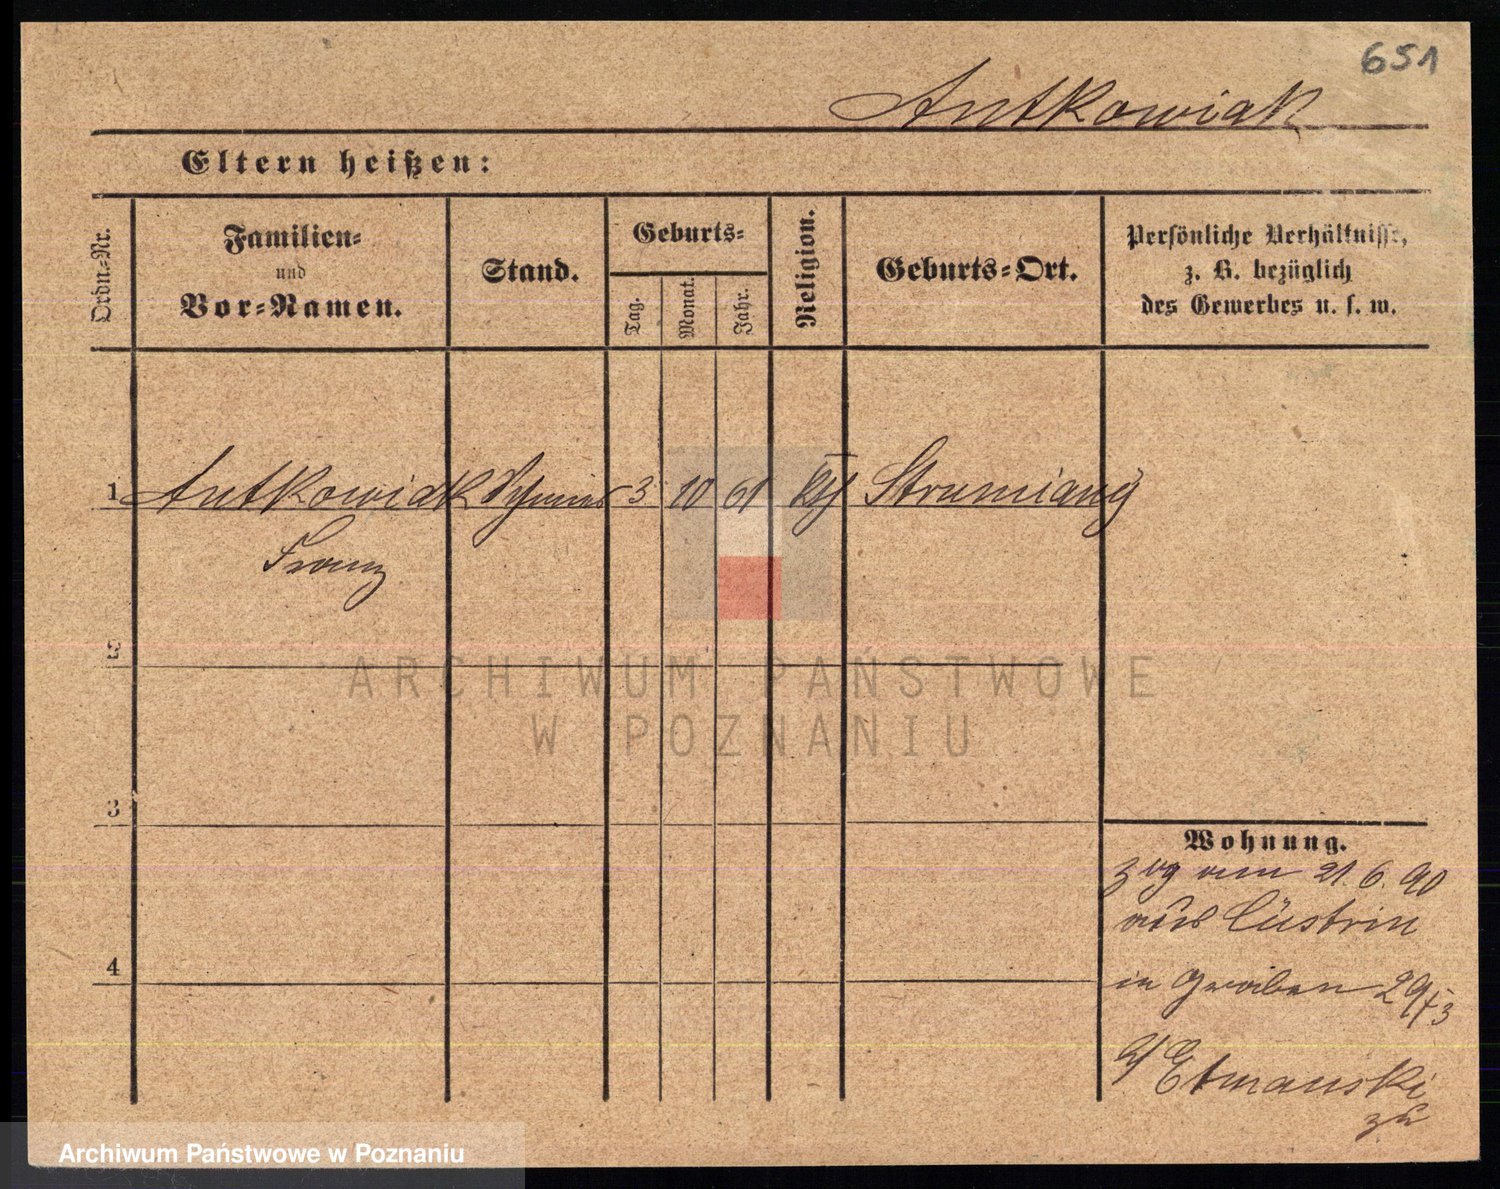 651
Antkowiak
Eltern heißen:
Ordn-Nr.
Familien-
und
Vor-Namen.
Stand.
Geburts-
Tag.
Monat.
Jahr.
Religion.
Geburts-Ort.
Persönliche Verhältnisse,
z. B. bezüglich
des Gewerbes u. s. w.
1 Antkowiak 3 10 61 kth Strumiany
Franz
2
3
4
Wohnung.
zog am 21.6.90
aus Cüstrin
in Graben 29
b/ Etmanski
zu
ARCHIWUM PAŃSTWOWE
W POZNANIU
Archiwum Państwowe w Poznaniu